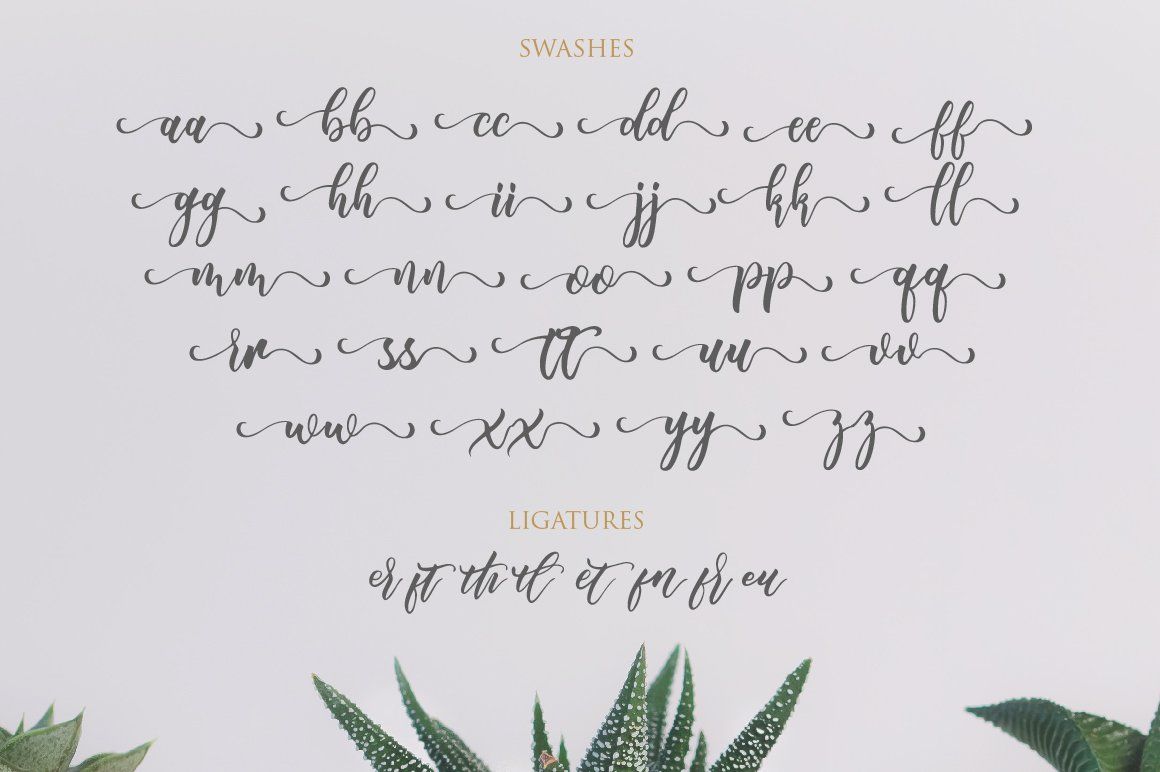 SWASHES
aa bb cc dd ee ff
gg hh ii jj kk ll
mm nn oo pp qq
rr ss tt uu vv
ww xx yy zz
LIGATURES
er ft th tl et fn fr eu